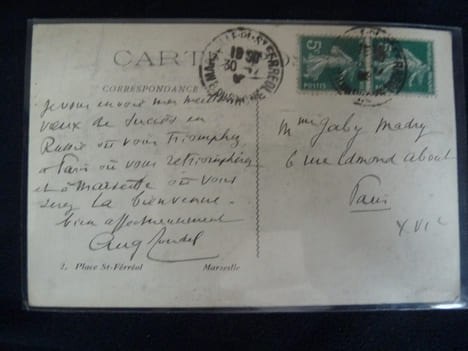 CARTE POSTALE
CORRESPONDANCE
MARSEILLE ST FERREOL
18 30
30
5c
POSTES
Je vous envoie mes meilleurs
vœux de succès en
Russie où vous triomphez
à Paris où vous retriompherez
et à Marseille où vous
serez la bienvenue.
bien affectueusement
Mme Gaby
6 rue Edmond About
Paris
XVIe
2, Place St-Férréol
Marseille